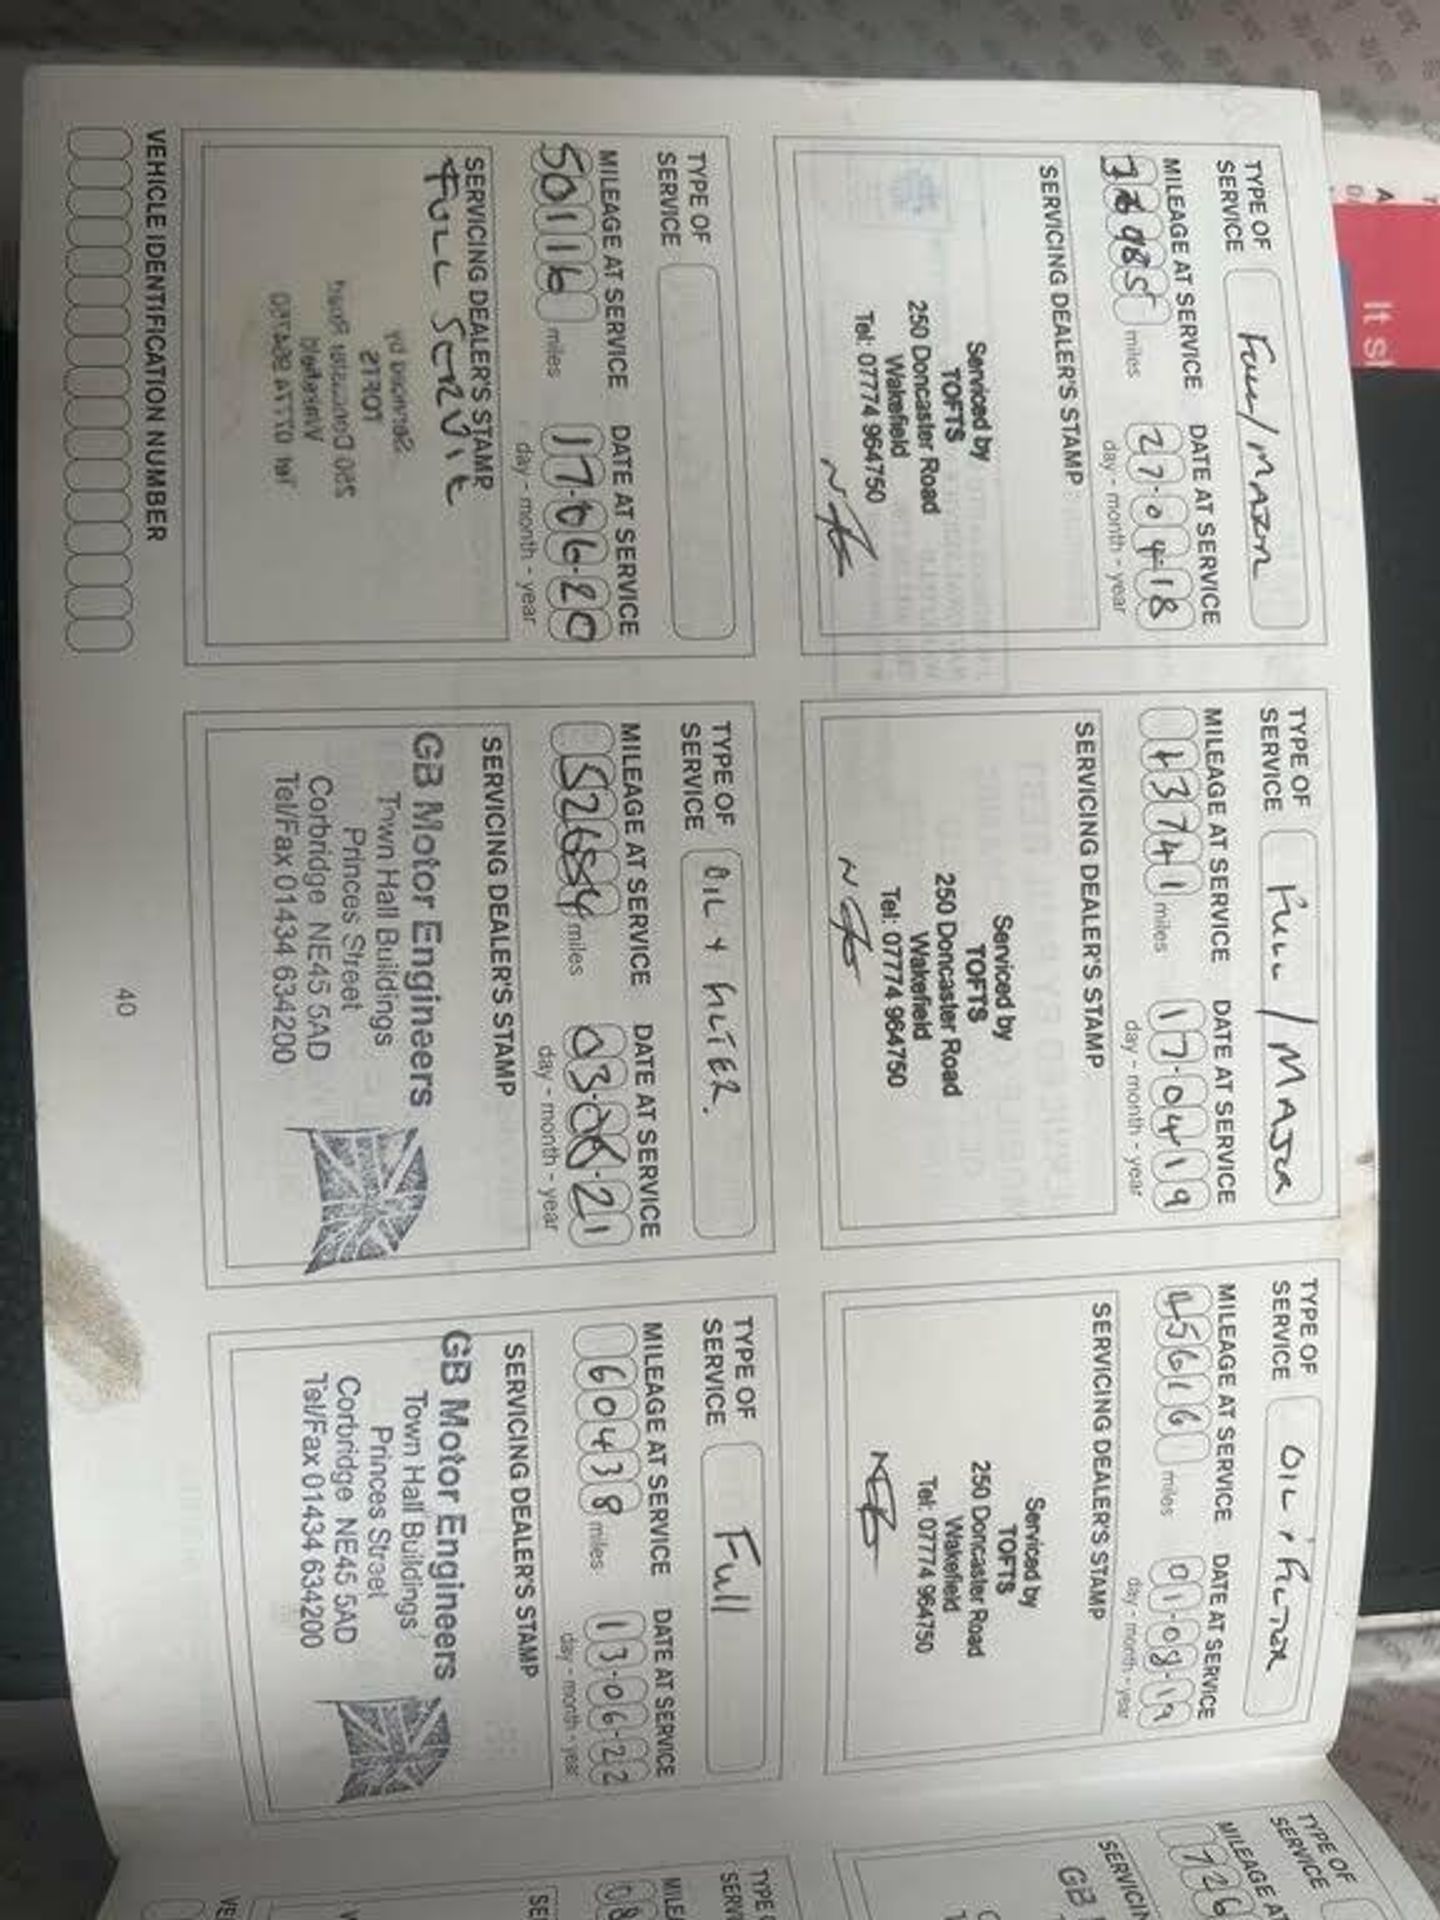 TYPE OF
SERVICE
Full/MAJOR
MILEAGE AT SERVICE
DATE AT SERVICE
miles
27-04-18
day - month - year
SERVICING DEALER'S STAMP
Serviced by
TOFTS
250 Doncaster Road
Wakefield
Tel: 07774 964750
TYPE OF
SERVICE
FULL / MAJOR
MILEAGE AT SERVICE
DATE AT SERVICE
43741 miles
17-04-19
day - month - year
SERVICING DEALER'S STAMP
Serviced by
TOFTS
250 Doncaster Road
Wakefield
Tel: 07774 964750
TYPE OF
SERVICE
OIL + FILTER
MILEAGE AT SERVICE
DATE AT SERVICE
45616 miles
01-08-19
day - month - year
SERVICING DEALER'S STAMP
Serviced by
TOFTS
250 Doncaster Road
Wakefield
Tel: 07774 964750
TYPE OF
SERVICE
MILEAGE AT SERVICE
DATE AT SERVICE
50116 miles
17-06-20
day - month - year
SERVICING DEALER'S STAMP
FULL
TYPE OF
SERVICE
OIL + FILTER.
MILEAGE AT SERVICE
DATE AT SERVICE
52684 miles
day - month - year
SERVICING DEALER'S STAMP
GB Motor Engineers
Town Hall Buildings
Princes Street
Corbridge NE45 5AD
Tel/Fax 01434 634200
TYPE OF
SERVICE
Full
MILEAGE AT SERVICE
DATE AT SERVICE
60438 miles
13-06-22
day - month - year
SERVICING DEALER'S STAMP
GB Motor Engineers
Town Hall Buildings
Princes Street
Corbridge NE45 5AD
Tel/Fax 01434 634200
VEHICLE IDENTIFICATION NUMBER
40
TYPE OF
SERVICE
MILEAGE AT
726
SERVICIN
GB
TYPE
SERV
MILE
08
SE
VE
It s